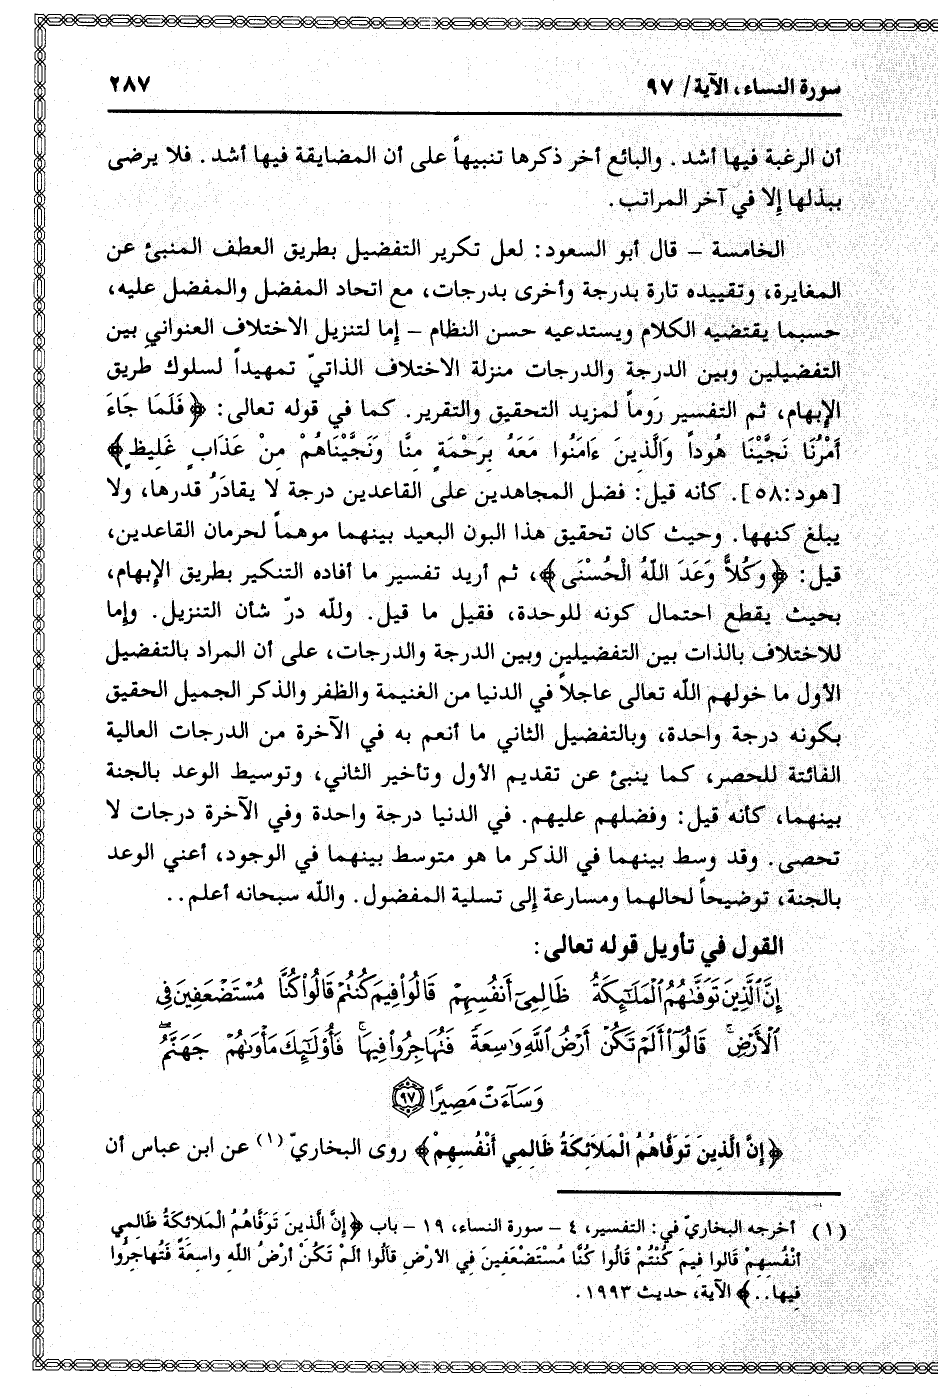 سورة النساء، الآية/ ٩٧
٢٨٧
أن الرغبة فيها أشد. والبائع أخر ذكرها تنبيهاً على أن المضايقة فيها أشد. فلا يرضى
ببذلها إلا في آخر المراتب.
الخامسة – قال أبو السعود: لعل تكرير التفضيل بطريق العطف المنبئ عن
المغايرة، وتقييده تارة بدرجة وأخرى بدرجات، مع اتحاد المفضل والمفضل عليه،
حسبما يقتضيه الكلام ويستدعيه حسن النظام – إما لتنزيل الاختلاف العنواني بين
التفضيلين وبين الدرجة والدرجات منزلة الاختلاف الذاتيّ تمهيداً لسلوك طريق
الإبهام، ثم التفسير رَوماً لمزيد التحقيق والتقرير. كما في قوله تعالى: ﴿فَلَمَا جَاءَ
أَمْرُنَا نَجَّيْنَا هُوداً وَالَّذِينَ ءَامَنُوا مَعَهُ بِرَحْمَةٍ مِنَّا وَنَجَّيْنَاهُمْ مِنْ عَذَابٍ غَلِيظٍ﴾
[هود:٥٨]. كأنه قيل: فضل المجاهدين على القاعدين درجة لا يقادَرُ قدرها، ولا
يبلغ كنهها. وحيث كان تحقيق هذا البون البعيد بينهما موهماً لحرمان القاعدين،
قيل: ﴿وَكُلاًّ وَعَدَ اللهُ الْحُسْنَى﴾، ثم أريد تفسير ما أفاده التنكير بطريق الإبهام،
بحيث يقطع احتمال كونه للوحدة، فقيل ما قيل. ولله درّ شأن التنزيل. وإما
للاختلاف بالذات بين التفضيلين وبين الدرجة والدرجات، على أن المراد بالتفضيل
الأول ما خولهم الله تعالى عاجلاً في الدنيا من الغنيمة والظفر والذكر الجميل الحقيق
بكونه درجة واحدة، وبالتفضيل الثاني ما أنعم به في الآخرة من الدرجات العالية
الفائتة للحصر، كما ينبئ عن تقديم الأول وتأخير الثاني، وتوسيط الوعد بالجنة
بينهما، كأنه قيل: وفضلهم عليهم. في الدنيا درجة واحدة وفي الآخرة درجات لا
تحصى. وقد وسط بينهما في الذكر ما هو متوسط بينهما في الوجود، أعني الوعد
بالجنة، توضيحاً لحالهما ومسارعة إلى تسلية المفضول. والله سبحانه أعلم..
القول في تأويل قوله تعالى:
إِنَّ ٱلَّذِينَ تَوَفَّىٰهُمُ ٱلْمَلَٰٓئِكَةُ ظَالِمِىٓ أَنفُسِهِمْ قَالُوا۟ فِيمَ كُنتُمْ قَالُوا۟ كُنَّا مُسْتَضْعَفِينَ فِى
ٱلْأَرْضِ ۚ قَالُوٓا۟ أَلَمْ تَكُنْ أَرْضُ ٱللَّهِ وَٰسِعَةً فَتُهَاجِرُوا۟ فِيهَا ۚ فَأُو۟لَٰٓئِكَ مَأْوَىٰهُمْ جَهَنَّمُ ۖ
وَسَآءَتْ مَصِيرًا ﴿٩٧﴾
﴿إِنَّ الَّذِينَ تَوَفَّاهُمُ الْمَلَائِكَةُ ظَالِمِي أَنْفُسِهِمْ﴾ روى البخاريّ (١) عن ابن عباس أن
(١) أخرجه البخاريّ في: التفسير، ٤ – سورة النساء، ١٩ – باب ﴿إِنَّ الَّذِينَ تَوَفَّاهُمُ الْمَلائِكَةُ ظَالِمِي
أَنْفُسِهِمْ قَالوا فِيمَ كُنْتُمْ قَالُوا كُنَّا مُسْتَضْعَفِينَ فِي الأرْضِ قالُوا ألَمْ تَكُنْ أرْضُ اللهِ واسِعَةً فَتُهاجِرُوا
فِيها..﴾ الآية، حديث ١٩٩٣.